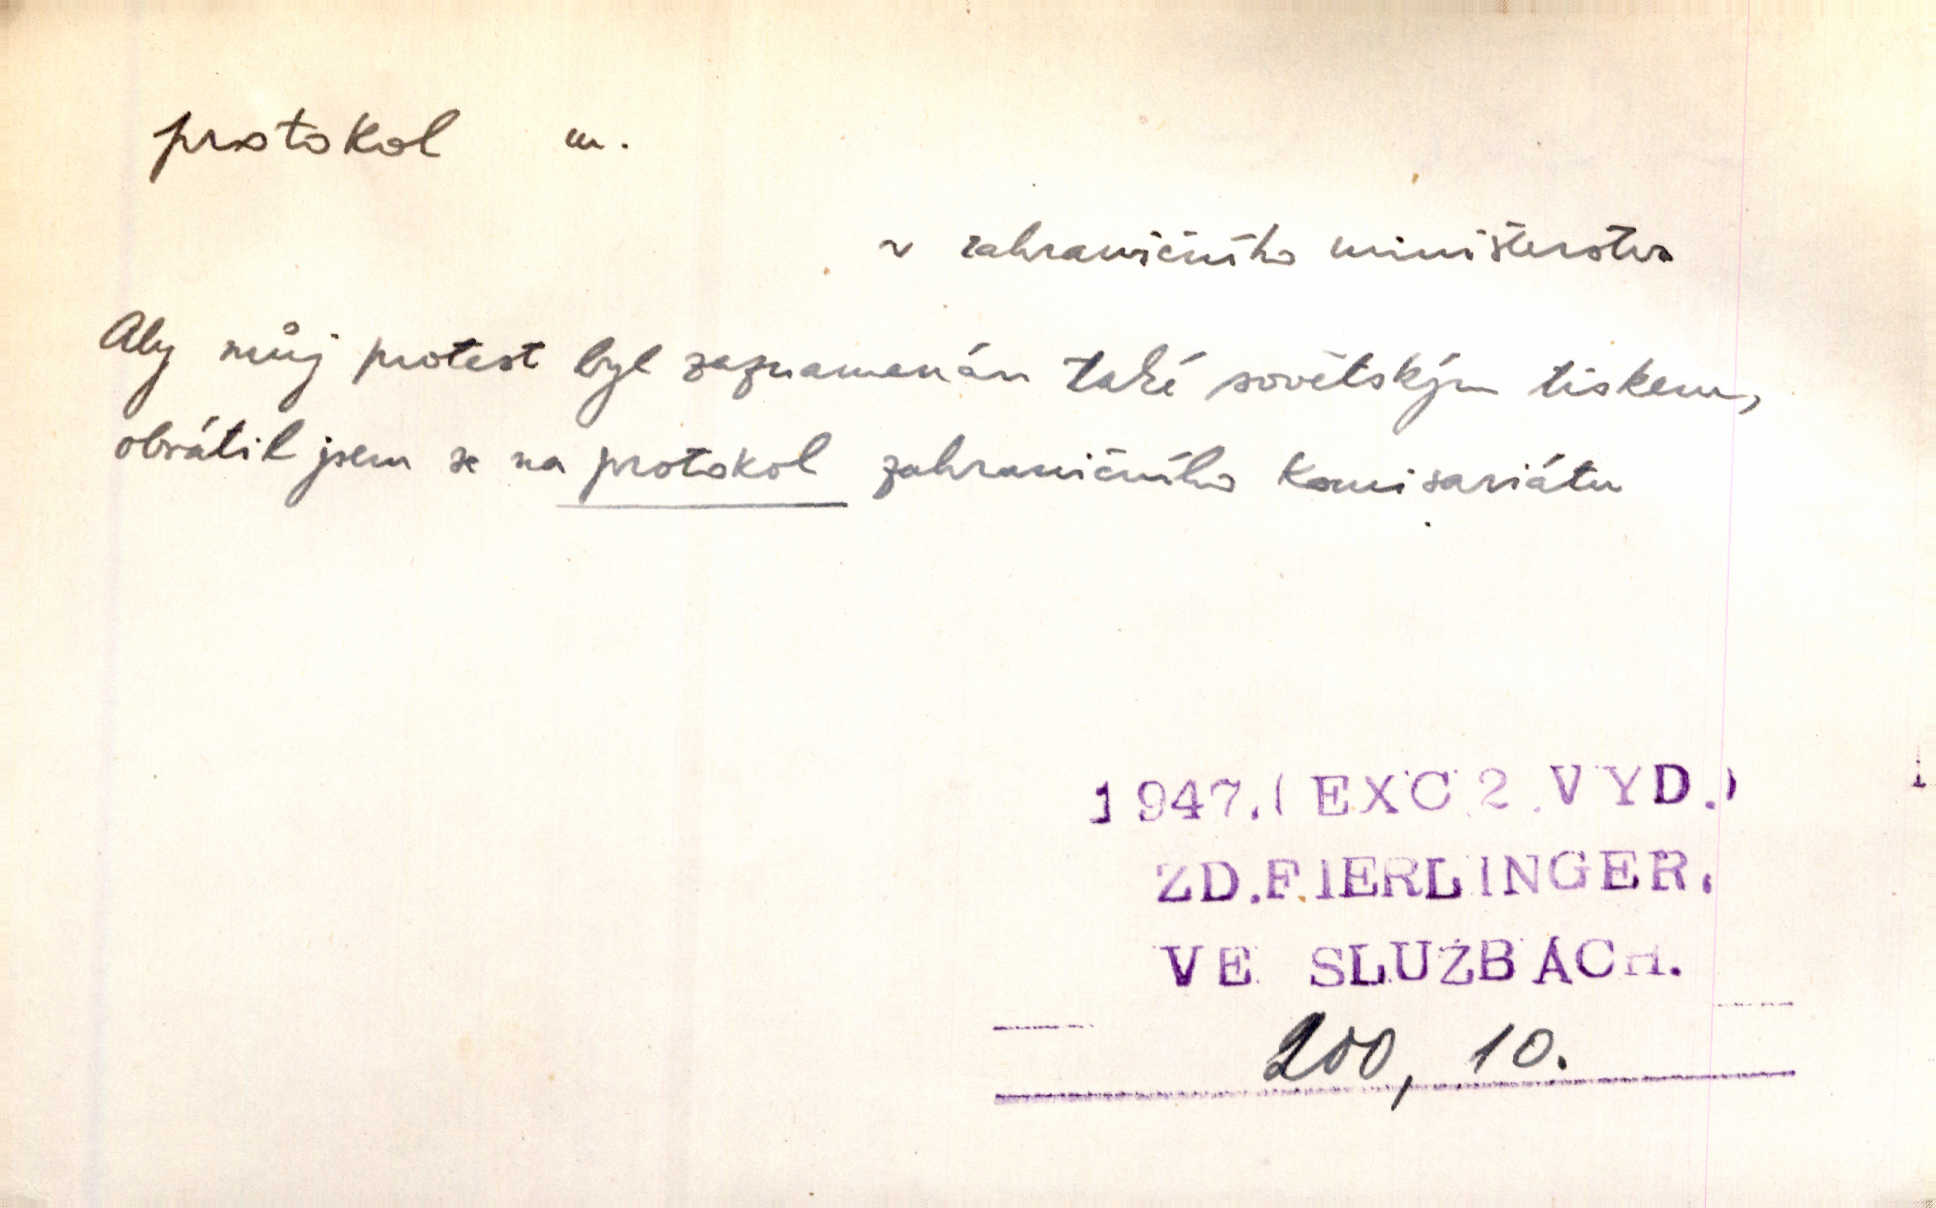 protokol m.
v zahraničního ministerstva
Aby můj protest byl zaznamenán také sovětským tiskem,
obrátil jsem se na protokol zahraničního komisariátu
1947. (EXC 2. VYD.)
ZD. FIERLINGER.
VE SLUŽBÁCH.
200, 10.